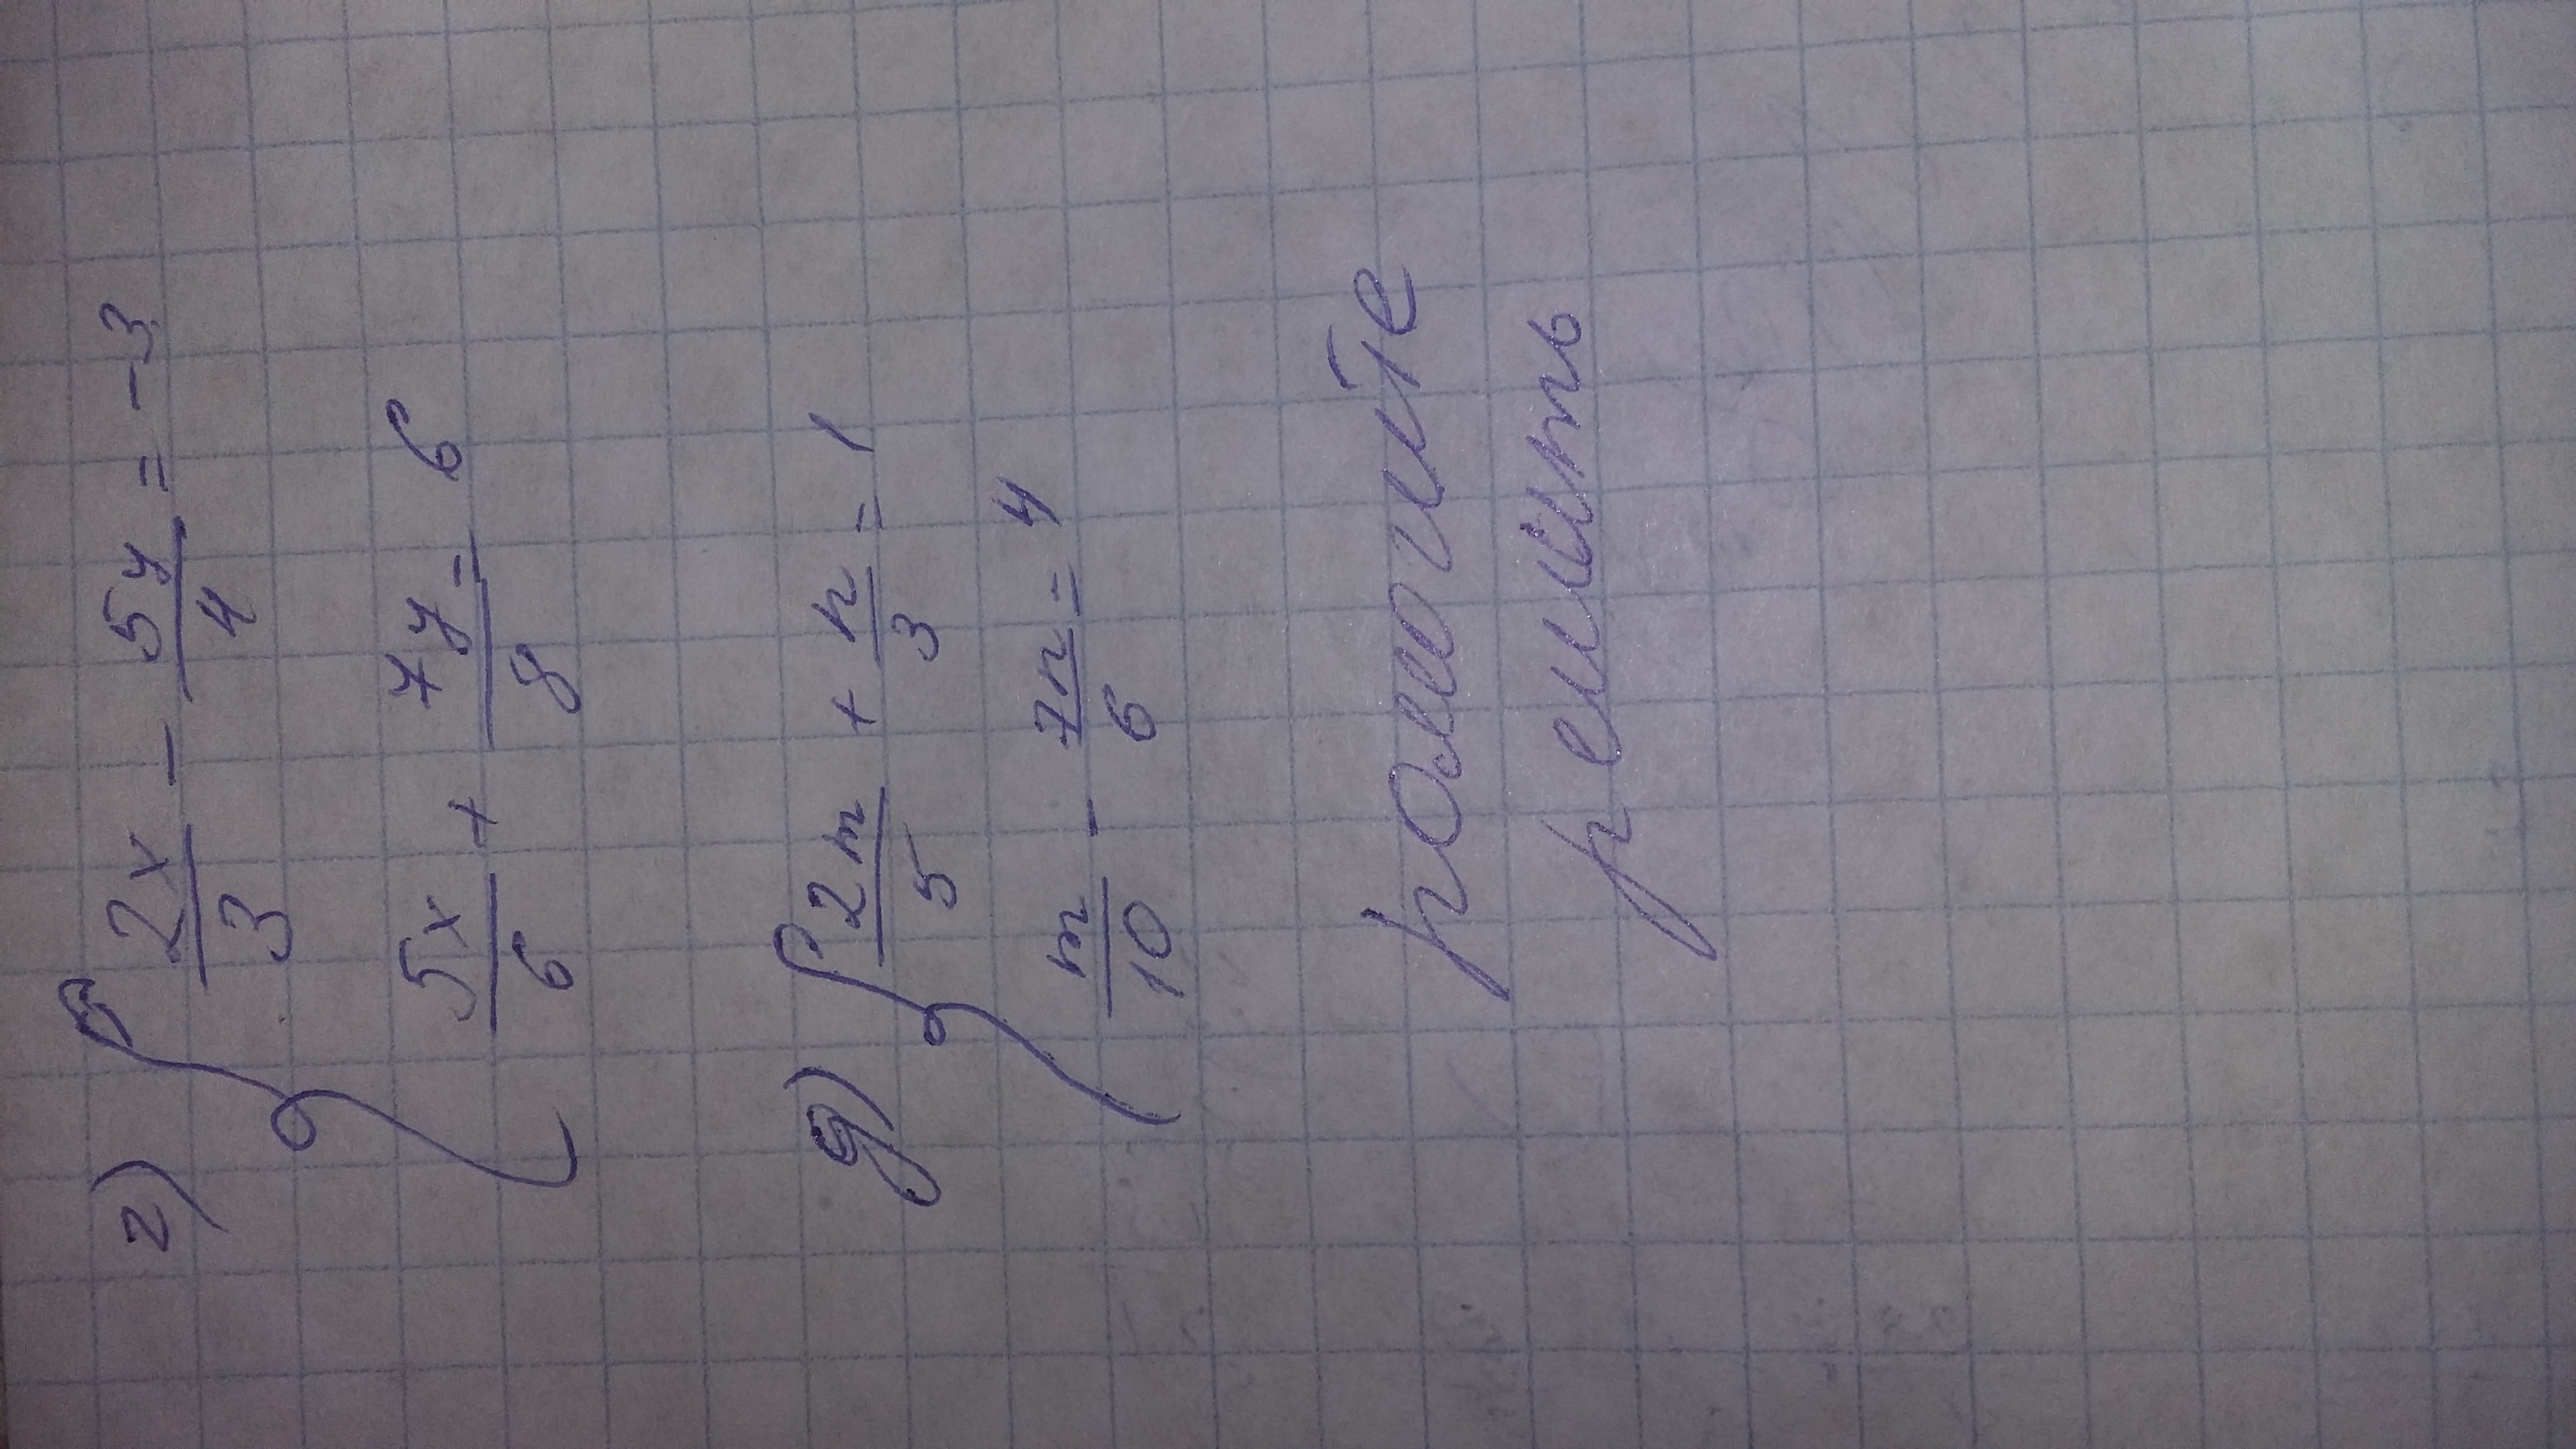 г) { 2x/3 - 5y/4 = -3
5x/6 + 7y/8 = 6
д) { 2m/5 + n/3 = 1
m/10 - 7n/6 = 4
помогите
решить